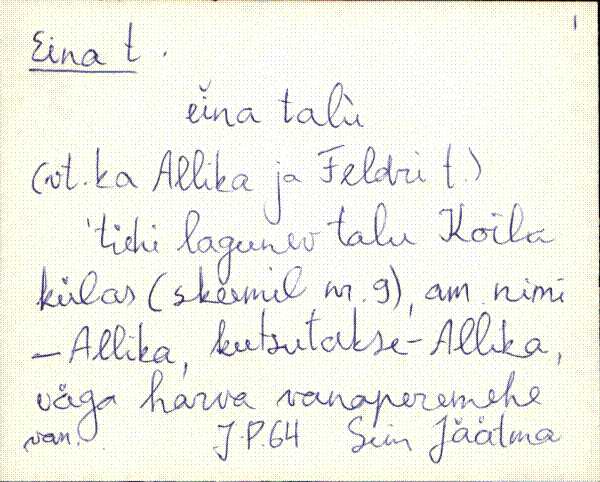 1
Eina t.
eĭna talù
(vt. ka Allika ja Feldri t.)
'tühi lagunev talu Koila
külas (skeemil nr. 9), am. nimi
– Allika, kutsutakse – Allika,
väga harva vanaperemehe
van. J.P.64 Siim Jäätma